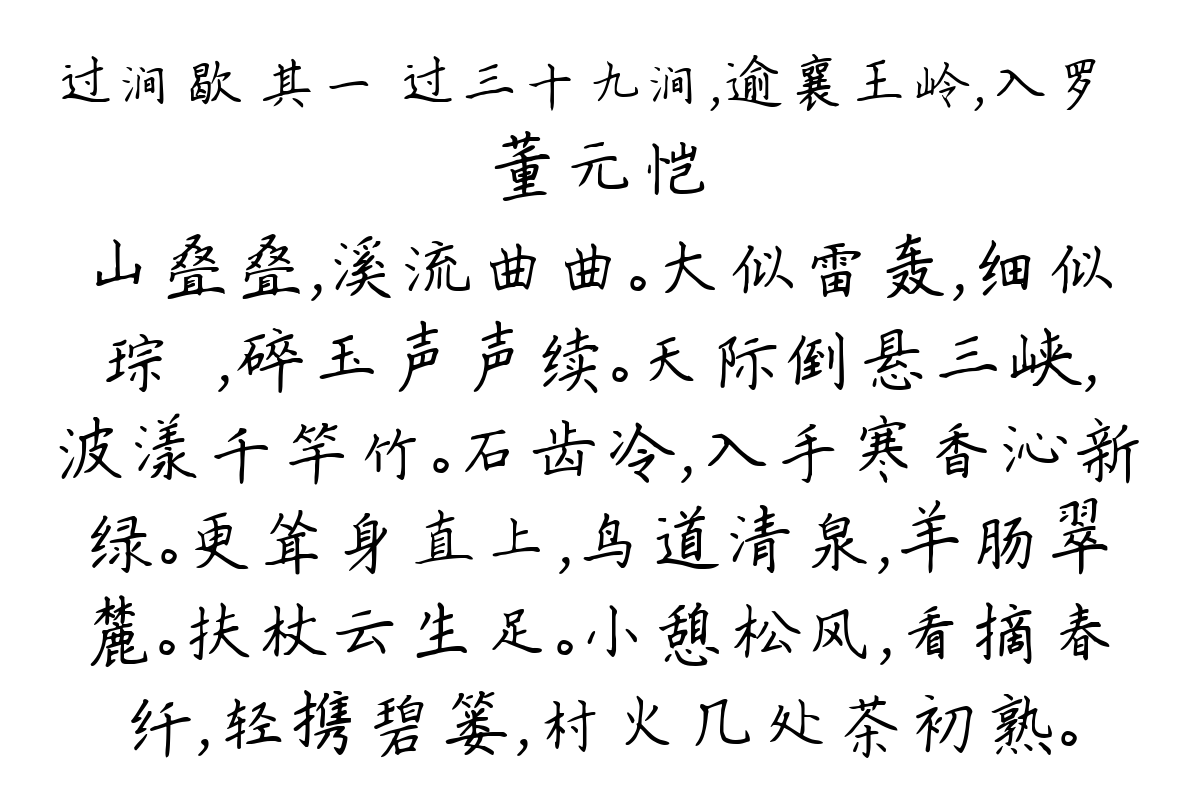 过涧歇 其一 过三十九涧,逾襄王岭,入罗
董元恺
山叠叠,溪流曲曲。大似雷轰,细似
琮 ,碎玉声声续。天际倒悬三峡,
波漾千竿竹。石齿冷,入手寒香沁新
绿。更耸身直上,鸟道清泉,羊肠翠
麓。扶杖云生足。小憩松风,看摘春
纤,轻携碧篓,村火几处茶初熟。